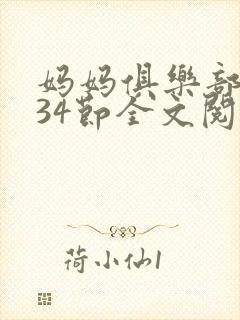 妈妈俱樂部
34節全文閱
荷小仙1